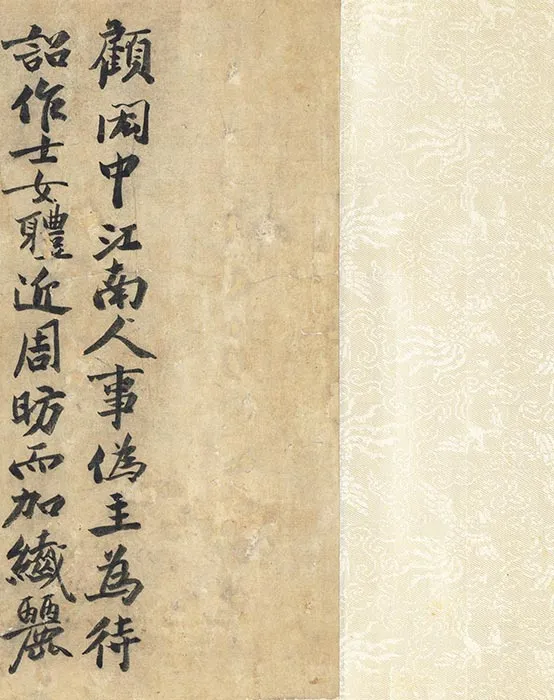 顧閎中江南人事偽主為待
詔作士女體近周昉而加纖麗